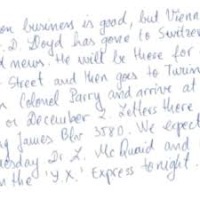 on business is good, but Vienna
D. Lloyd has gone to Switzer
d news. He will be there for
Street and then goes to Turin
Colonel Parry and arrive at
or December 2. Letters there
g James Blv 3580. We expect
sday Dr L. McQuaid and
the 'Y.X.' Express tonight.